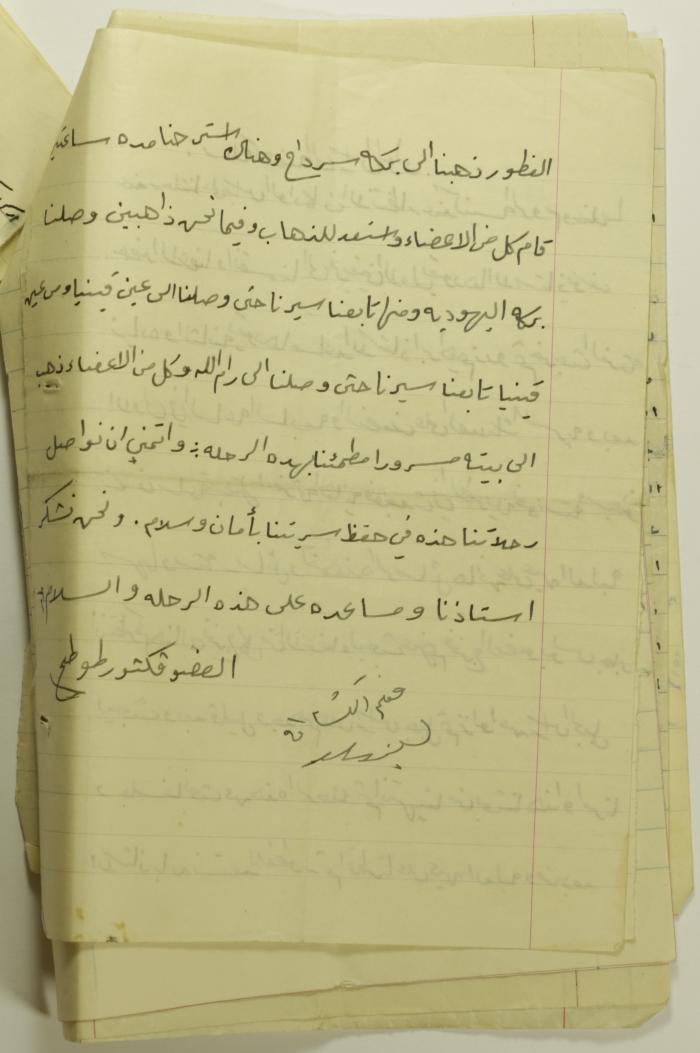 الفطور ذهبنا الى بركه سرداح وهناك استرحنا مده ساعتين
قام كل من الاعضاء واستعد للذهاب وفيما نحن ذاهبين وصلنا
بركه اليهوديه ومنها تابعنا سيرنا حتى وصلنا الى عين قينيا ومن عين
قينيا تابعنا سيرنا حتى وصلنا الى رام الله وكل من الاعضاء ذهب
الى بيته مسرورا مطمئنا بهده الرحله : واتمنى ان نواصل
رحلاتنا هذه في حفظ سريتنا بأمان وسلام . ونحن نشكر
استاذنا ومساعده على هذه الرحله والسلام :
العضو فكتور طوطح
معلم الكشافة